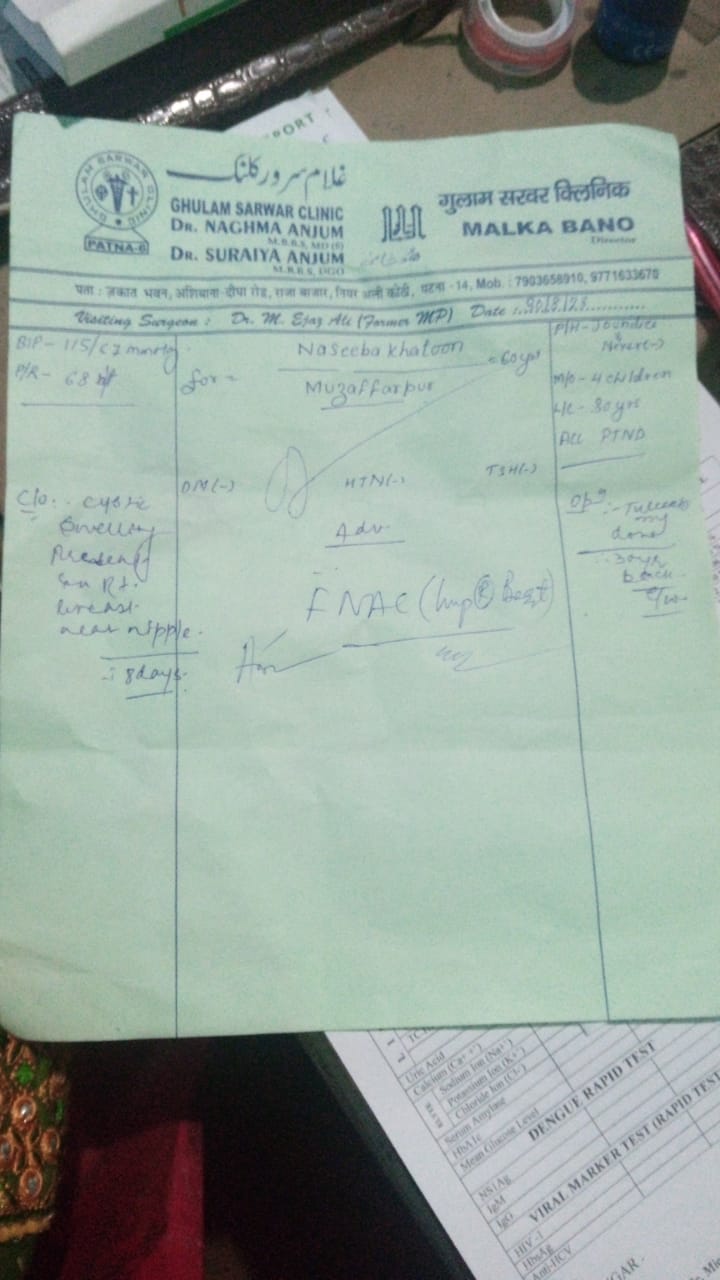 PORT
GHULAM SARWAR CLINIC
PATNA-6
غلام سرور کلنک
GHULAM SARWAR CLINIC
DR. NAGHMA ANJUM
M.B.B.S, MD
DR. SURAIYA ANJUM
M.B.B.S, DGO
गुलाम सरवर क्लिनिक
MALKA BANO
Director
पता : ज़कात भवन, अशियाना दीघा रोड, राजा बाजार, नियर अली कोठी, पटना - 14, Mob. : 7903658910, 9771633670
Visiting Surgeon : Dr. M. Ejaz Ali (Former MP) Date :
B/P - 115/67 mmHg
P/R - 68
for =
Naseeba khatoon
= 60 yrs
Muzaffarpur
P/H - Joundice
M/O - 4 children
L/C - 30 yrs
ALL PTND
DM(-)
HTN(-)
TSH(-)
C/o. . cystic
Swelling
Present
Rt.
breast
near nipple.
: 8 days.
Adv
FNAC (Lump R Breast)
Opn :-
done
30 yr
back
Uric Acid
Calcium (Ca++)
Sodium Ion (Na+)
Potassium Ion (K+)
Chloride Ion (Cl-)
Serum Amylase
HbA1c
Mean Glucose Level
DENGUE RAPID TEST
NS1Ag
IgM
IgG
VIRAL MARKER TEST (RAPID TEST
HIV -I
HbsAg
Anti-HCV